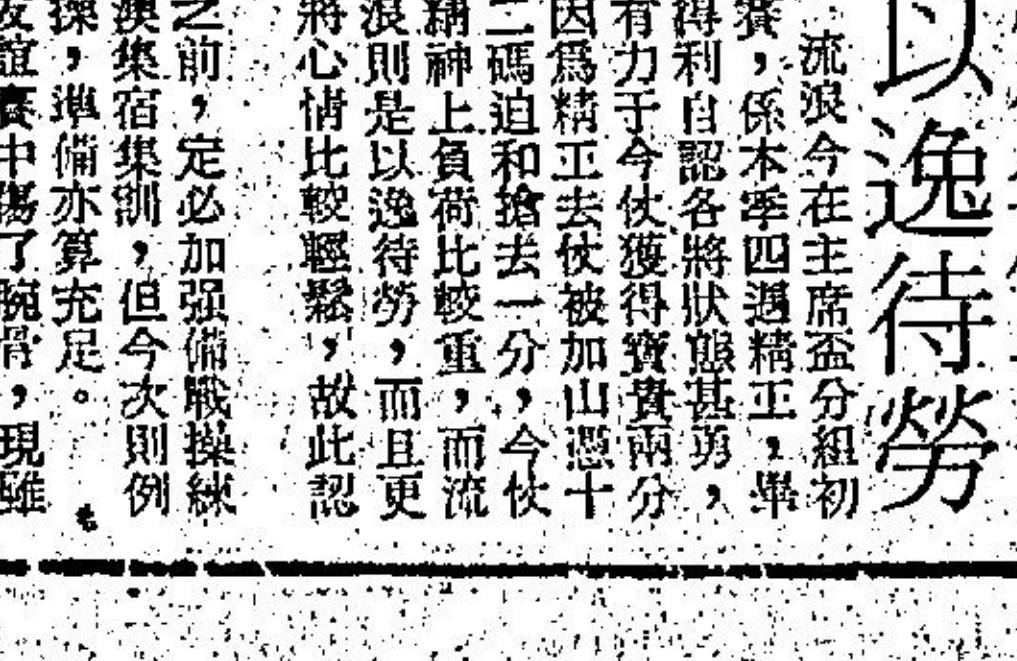 以逸待勞
流浪今在主席盃分組初
賽，係本季四遇精工，畢
得利自認各將狀態甚勇，
有力于今仗獲得寶貴兩分
因爲精工去仗被加山憑十
二碼迫和搶去一分，今仗
精神上負荷比較重，而流
浪則是以逸待勞，而且更
將心情比較輕鬆，故此認
之前，定必加强備戰操練
澳集宿集訓，但今次則例
操，準備亦算充足。
友誼賽中傷了腕骨，現雖